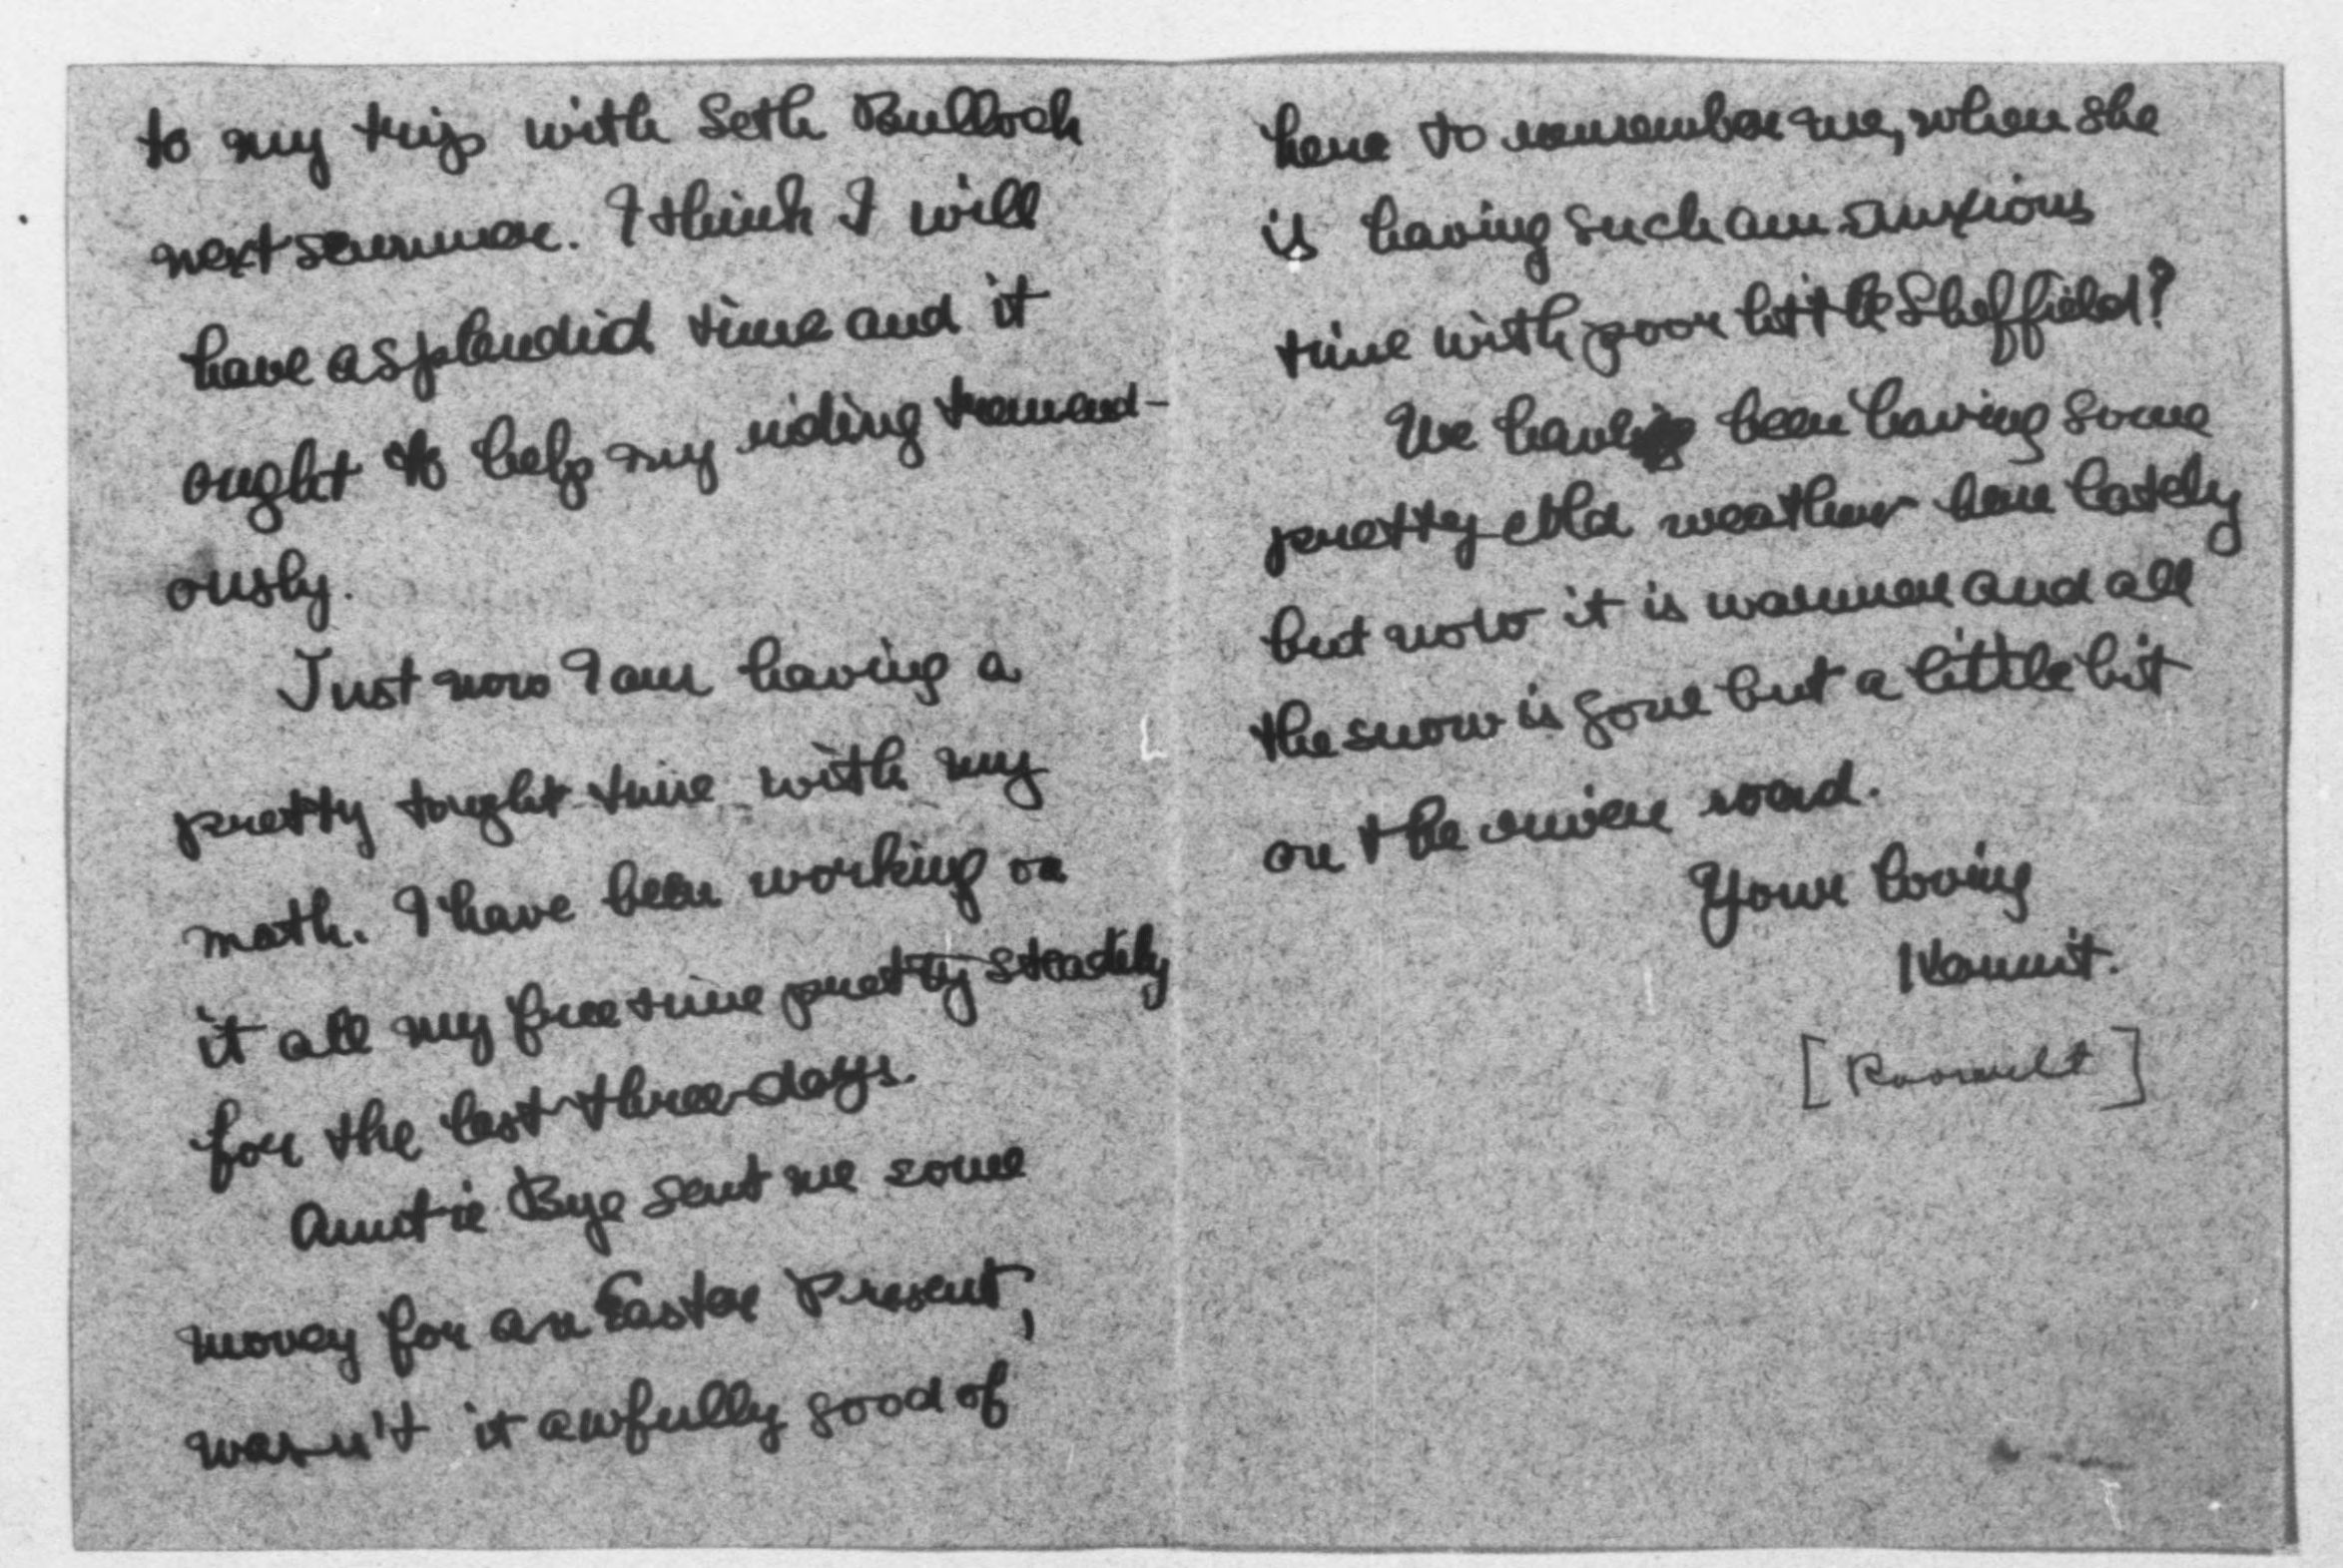 to my trip with Seth Bullock
next summer. I think I will
have a splendid time and it
ought to help my riding tremend-
ously.
Just now I am having a
pretty tought time with my
math. I have been working on
it all my free time pretty steadely
for the last three days.
Auntie Bye sent me some
money for an Easter Present,
wasn't it awfully good of
here to remember me, when she
is having such an anxious
time with poor little Sheffield?
We have been having some
pretty cold weather here lately
but now it is warmer and all
the snow is gone but a little bit
on the river road.
Your loving
Kermit.
[Roosevelt]